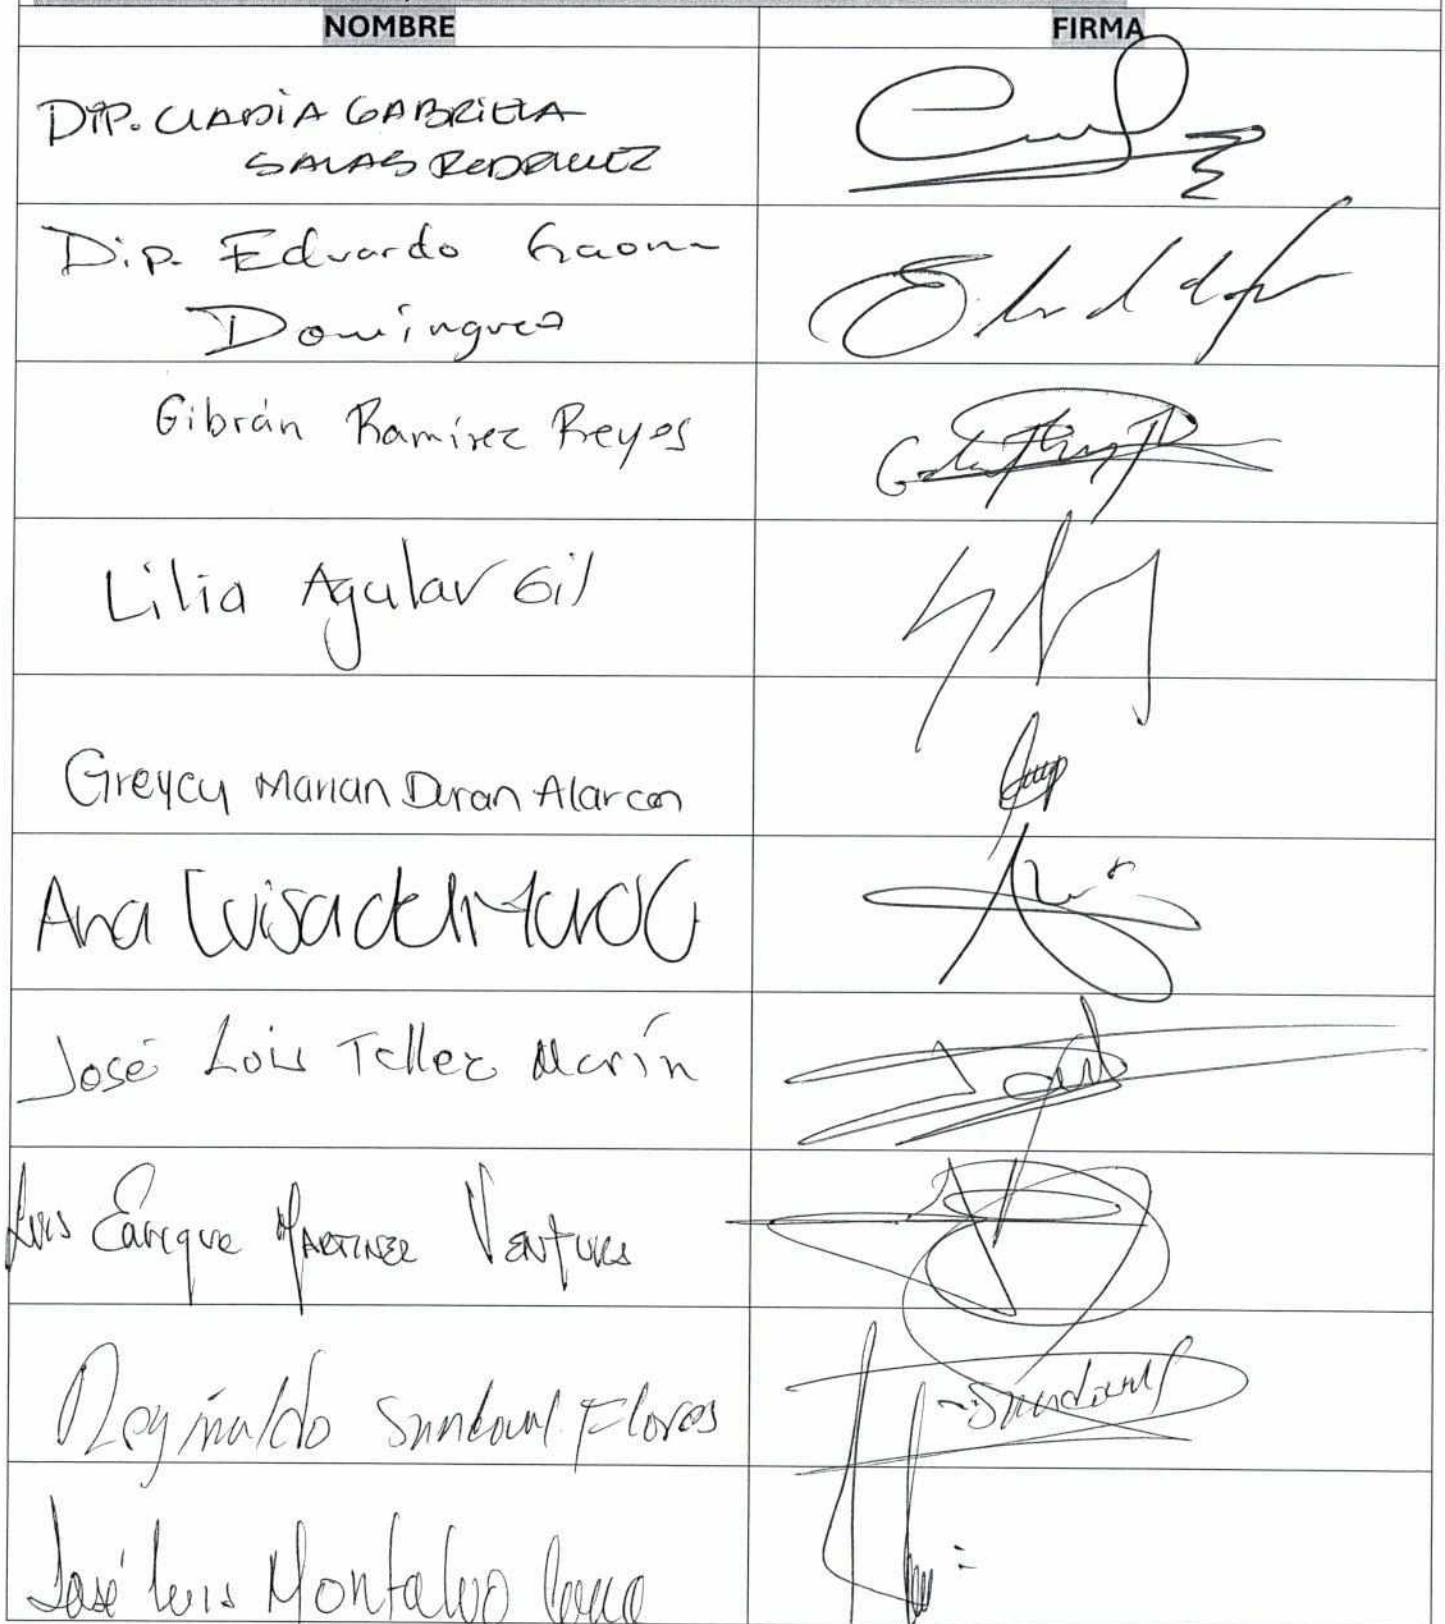 NOMBRE FIRMA
DIP. CLAUDIA GABRIELA
SALAS RODRIGUEZ
Dip. Eduardo Gaona
Domínguez
Gibrán Ramírez Reyes
Lilia Aguilar Gil
Greycy Marian Duran Alarcon
Ana Luisa del Muro G
José Luis Tellez Marín
Luis Enrique MARTINEZ VENTURA
Reginaldo Sandoval Flores
Sandoval
José Luis Montalvo